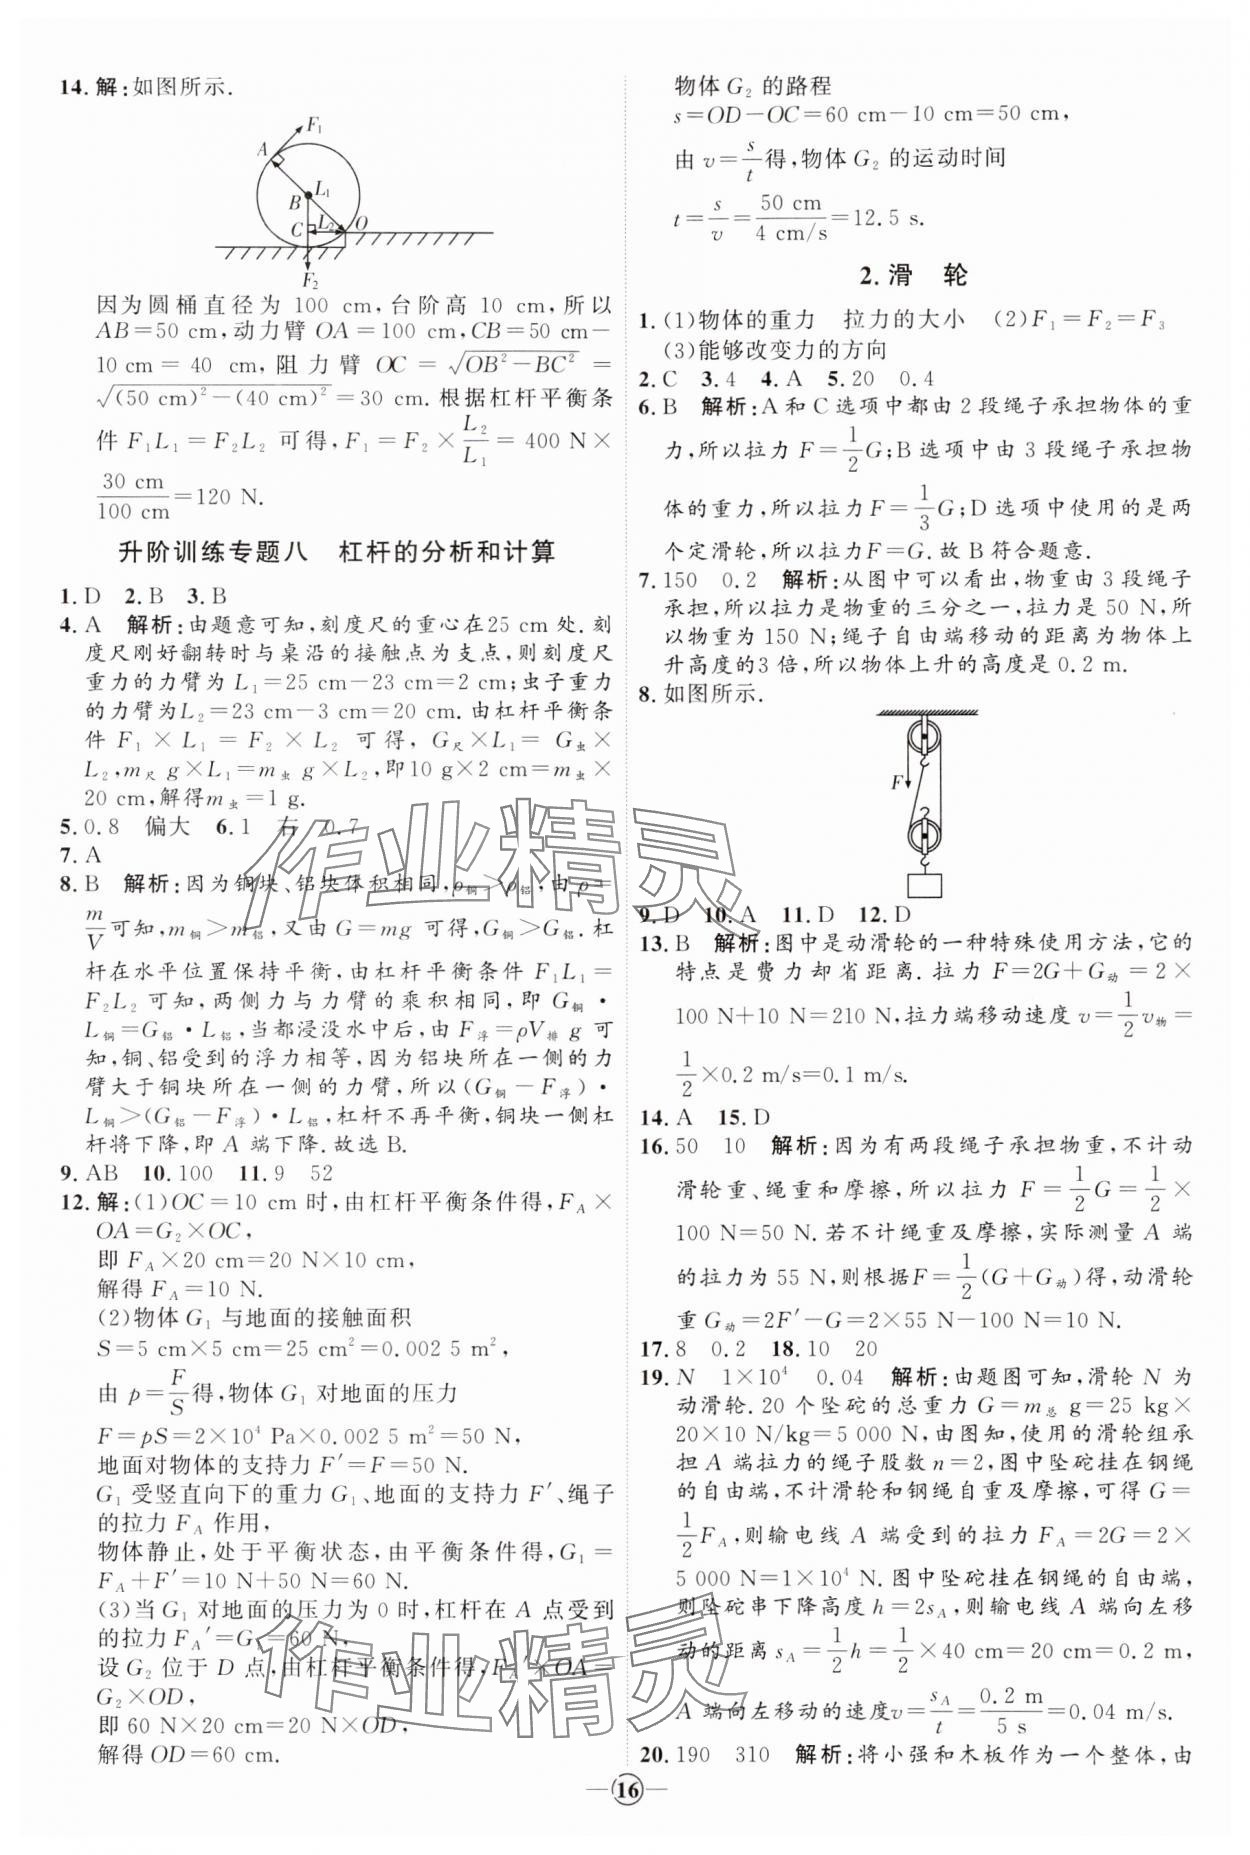 14. 解:如图所示.
F₁
A
B
L₁
C
L₂
O
F₂
因为圆桶直径为 100 cm,台阶高 10 cm,所以
AB=50 cm,动力臂 OA=100 cm,CB=50 cm-
10 cm = 40 cm,阻力臂 OC = √(OB²-BC²) =
√((50 cm)²-(40 cm)²)=30 cm.根据杠杆平衡条
件 F₁L₁=F₂L₂ 可得,F₁=F₂×L₂/L₁=400 N×
30 cm/100 cm=120 N.
升阶训练专题八 杠杆的分析和计算
1. D 2. B 3. B
4. A 解析:由题意可知,刻度尺的重心在25 cm 处.刻
度尺刚好翻转时与桌沿的接触点为支点,则刻度尺
重力的力臂为 L₁=25 cm-23 cm=2 cm;虫子重力
的力臂为L₂=23 cm-3 cm=20 cm.由杠杆平衡条
件 F₁×L₁=F₂×L₂ 可得,G尺×L₁=G虫×
L₂,m尺 g×L₁=m虫 g×L₂,即10 g×2 cm=m虫×
20 cm,解得m虫=1 g.
5. 0.8 偏大 6. 1 右 0.7
7. A
8. B 解析:因为铜块、铝块体积相同,ρ铜>ρ铝,由 ρ=
m/V可知,m铜>m铝,又由 G=mg 可得,G铜>G铝.杠
杆在水平位置保持平衡,由杠杆平衡条件 F₁L₁=
F₂L₂ 可知,两侧力与力臂的乘积相同,即 G铜·
L铜=G铝·L铝,当都浸没水中后,由 F浮=ρV排 g 可
知,铜、铝受到的浮力相等,因为铝块所在一侧的力
臂大于铜块所在一侧的力臂,所以(G铜-F浮)·
L铜>(G铝-F浮)·L铝,杠杆不再平衡,铜块一侧杠
杆将下降,即 A 端下降.故选 B.
9. AB 10. 100 11. 9 52
12. 解:(1)OC=10 cm 时,由杠杆平衡条件得,F_A×
OA=G₂×OC,
即 F_A×20 cm=20 N×10 cm,
解得 F_A=10 N.
(2)物体 G₁ 与地面的接触面积
S=5 cm×5 cm=25 cm²=0.002 5 m²,
由 p=F/S得,物体 G₁ 对地面的压力
F=pS=2×10⁴ Pa×0.002 5 m²=50 N,
地面对物体的支持力 F′=F=50 N.
G₁ 受竖直向下的重力 G₁、地面的支持力 F′、绳子
的拉力 F_A 作用,
物体静止,处于平衡状态,由平衡条件得,G₁=
F_A+F′=10 N+50 N=60 N.
(3)当 G₁ 对地面的压力为 0 时,杠杆在 A 点受到
的拉力 F_A′=G₁=60 N,
设 G₂ 位于 D 点,由杠杆平衡条件得,F_A′×OA=
G₂×OD,
即 60 N×20 cm=20 N×OD,
解得 OD=60 cm.
物体 G₂ 的路程
s=OD-OC=60 cm-10 cm=50 cm,
由 v=s/t得,物体 G₂ 的运动时间
t=s/v=50 cm/4 cm/s=12.5 s.
2. 滑 轮
1. (1)物体的重力 拉力的大小 (2)F₁=F₂=F₃
(3)能够改变力的方向
2. C 3. 4 4. A 5. 20 0.4
6. B 解析:A 和 C 选项中都由 2 段绳子承担物体的重
力,所以拉力 F=1/2G;B 选项中由 3 段绳子承担物
体的重力,所以拉力F=1/3G;D 选项中使用的是两
个定滑轮,所以拉力F=G.故 B 符合题意.
7. 150 0.2 解析:从图中可以看出,物重由 3 段绳子
承担,所以拉力是物重的三分之一,拉力是 50 N,所
以物重为 150 N;绳子自由端移动的距离为物体上
升高度的3 倍,所以物体上升的高度是 0.2 m.
8. 如图所示.
F
9. D 10. A 11. D 12. D
13. B 解析:图中是动滑轮的一种特殊使用方法,它的
特点是费力却省距离.拉力 F=2G+G动=2×
100 N+10 N=210 N,拉力端移动速度 v=1/2v物=
1/2×0.2 m/s=0.1 m/s.
14. A 15. D
16. 50 10 解析:因为有两段绳子承担物重,不计动
滑轮重、绳重和摩擦,所以拉力 F=1/2G=1/2×
100 N=50 N.若不计绳重及摩擦,实际测量 A 端
的拉力为 55 N,则根据F=1/2(G+G动)得,动滑轮
重 G动=2F′-G=2×55 N-100 N=10 N.
17. 8 0.2 18. 10 20
19. N 1×10⁴ 0.04 解析:由题图可知,滑轮 N 为
动滑轮.20 个坠砣的总重力 G=m总 g=25 kg×
20×10 N/kg=5 000 N,由图知,使用的滑轮组承
担 A 端拉力的绳子股数 n=2,图中坠砣挂在钢绳
的自由端,不计滑轮和钢绳自重及摩擦,可得 G=
1/2F_A,则输电线 A 端受到的拉力 F_A=2G=2×
5 000 N=1×10⁴ N.图中坠砣挂在钢绳的自由端,
则坠砣串下降高度 h=2s_A,则输电线 A 端向左移
动的距离 s_A=1/2h=1/2×40 cm=20 cm=0.2 m,
A 端向左移动的速度v=s_A/t=0.2 m/5 s=0.04 m/s.
20. 190 310 解析:将小强和木板作为一个整体,由
16
作业精灵
作业精灵